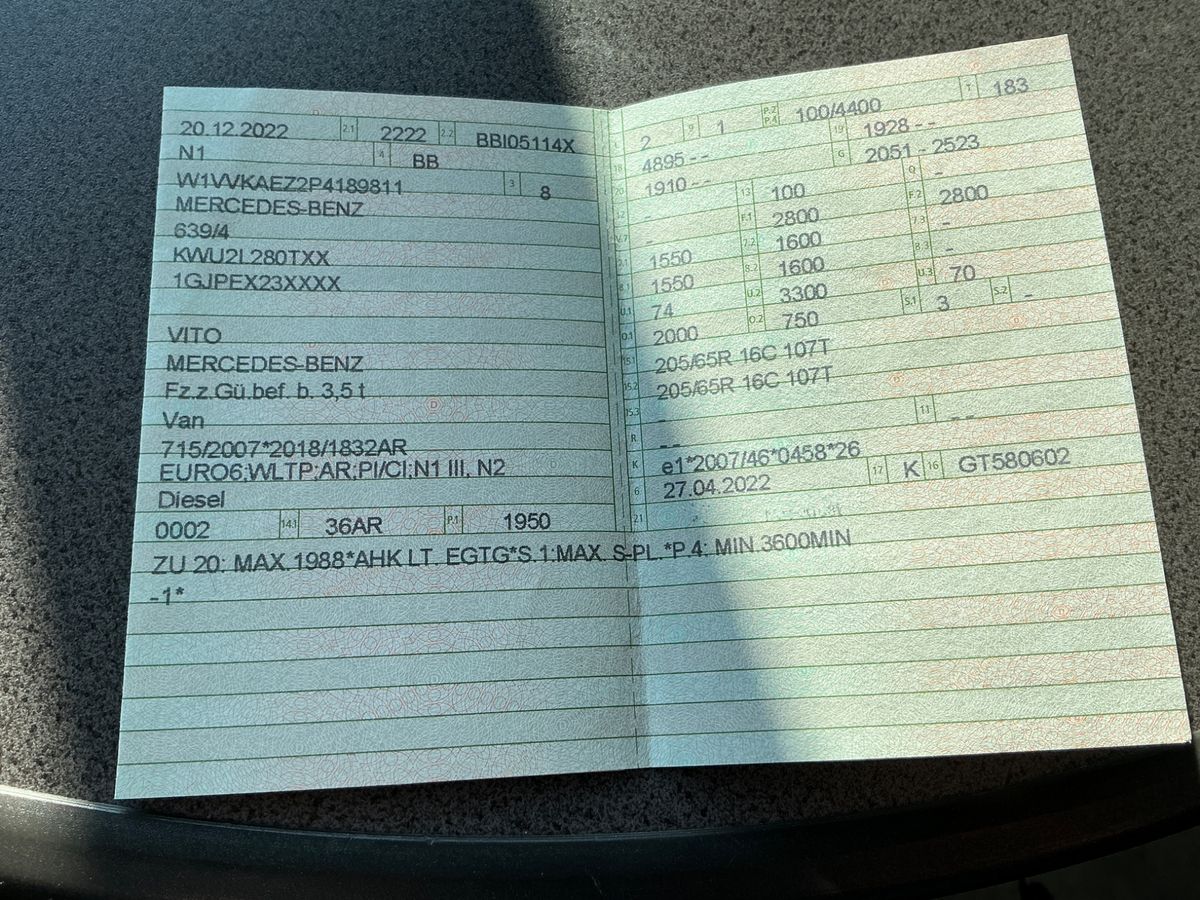 20.12.2022 2.1 2222 2.2 BBI05114X
N1 4 BB
W1VVKAEZ2P4189811 3 8
MERCEDES-BENZ
639/4
KWU2L280TXX
1GJPEX23XXXX
VITO
MERCEDES-BENZ
Fz.z.Gü.bef. b. 3,5 t
Van
715/2007*2018/1832AR
EURO6;WLTP;AR;PI/CI;N1 III, N2
Diesel
0002 14.1 36AR P.1 1950
2 9 1 P.2 P.4 100/4400 T 183
18 4895 - - 19 1928 - -
20 1910 - - G 2051 - 2523
12 - 13 100 Q -
V.7 - F.1 2800 F.2 2800
7.1 1550 7.2 1600 7.3 -
8.1 1550 8.2 1600 8.3 -
U.1 74 U.2 3300 U.3 70
O.1 2000 O.2 750 S.1 3 S.2 -
15.1 205/65R 16C 107T
15.2 205/65R 16C 107T
15.3 -
R - - 11 - -
K e1*2007/46*0458*26
6 27.04.2022 17 K 16 GT580602
21
ZU 20: MAX.1988*AHK LT. EGTG*S.1:MAX. S-PL.*P.4: MIN.3600MIN
-1*